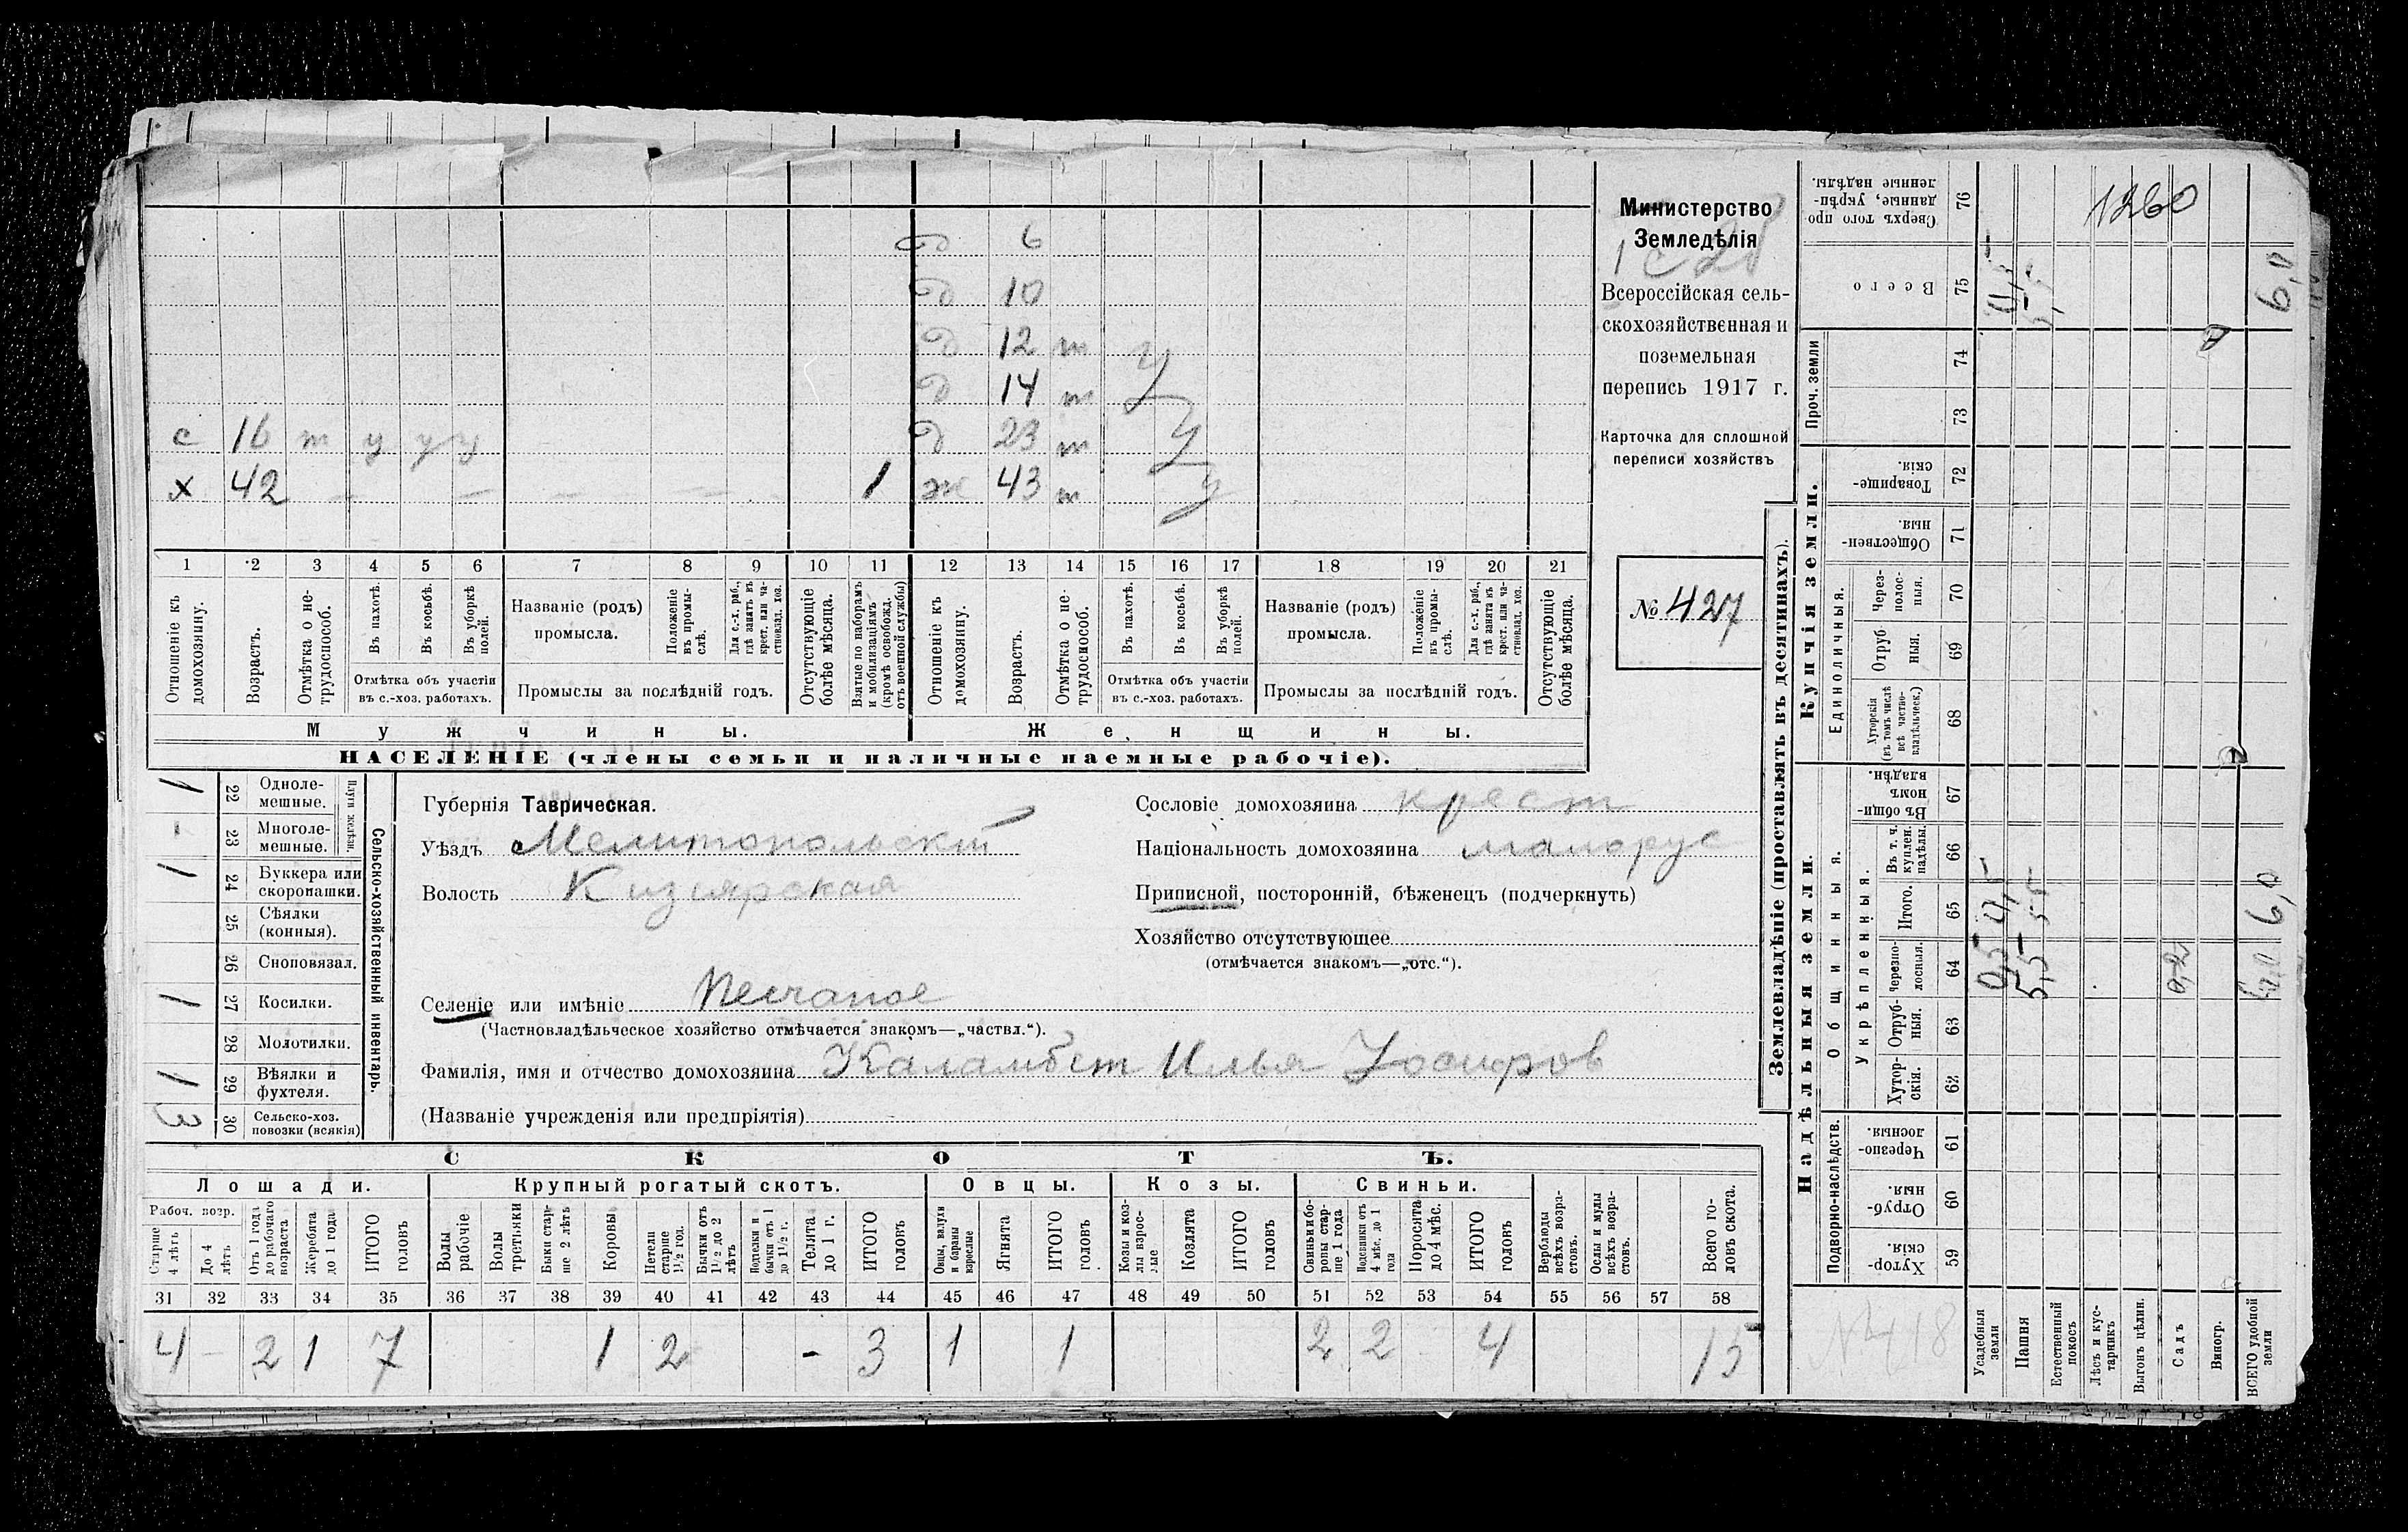 д 6
д 10
д 12 т
д 14 т у
с 16 т у у у д 23 т у
х 42 — — — — 1 ж 43 т у
1 2 3 4 5 6 7 8 9 10 11 12 13 14 15 16 17 18 19 20 21
Отношеніе къ домохозяину.
Возрастъ.
Отмѣтка о не-трудоспособ.
Въ пахотѣ.
Въ косьбѣ.
Въ уборкѣ полей.
Отмѣтка объ участіи
въ с.-хоз. работахъ.
Названіе (родъ)
промысла.
Положеніе въ промы-слѣ.
Для с.-х. раб., гдѣ занятъ въ крест. или ча-стновлад. хоз.
Промыслы за послѣдній годъ.
Отсутствующіе болѣе мѣсяца.
Взятые по наборамъ и мобилизаціямъ (кромѣ освобожд. отъ военной службы)
Отношеніе къ домохозяину.
Возрастъ.
Отмѣтка о не-трудоспособ.
Въ пахотѣ.
Въ косьбѣ.
Въ уборкѣ полей.
Отмѣтка объ участіи
въ с.-хоз. работахъ.
Названіе (родъ)
промысла.
Положеніе въ промы-слѣ.
Для с.-х. раб., гдѣ занята въ крест. или ча-стновлад. хоз.
Промыслы за послѣдній годъ.
Отсутствующіе болѣе мѣсяца.
Мужчины. Женщины.
НАСЕЛЕНІЕ (члены семьи и наличные наемные рабочіе).
Министерство
Земледѣлія
Всероссійская сель-
скохозяйственная и
поземельная
перепись 1917 г.
Карточка для сплошной
переписи хозяйствъ
№ 427
Сельско-хозяйственный инвентарь.
Плуги желѣзн.
1 22 Одноле-мешные.
- 23 Многоле-мешные.
1 24 Буккера или скоропашки.
25 Сѣялки (конныя).
26 Сноповязал.
1 27 Косилки.
28 Молотилки.
1 29 Вѣялки и фухтеля.
3 30 Сельско-хоз. повозки (всякія)
Губернія Таврическая.
Уѣздъ Мелитопольскій
Волость Кизиярская
Селеніе или имѣніе Песчаное
(Частновладѣльческое хозяйство отмѣчается знакомъ—„частвл.“).
Фамилія, имя и отчество домохозяина Каламбет Илья Иосифов
(Названіе учрежденія или предпріятія)
Сословіе домохозяина крест
Національность домохозяина малорус
Приписной, посторонній, бѣженецъ (подчеркнуть)
Хозяйство отсутствующее
(отмѣчается знакомъ—„отс.“).
СКОТЪ.
Лошади. Крупный рогатый скотъ. Овцы. Козы. Свиньи.
Рабоч. возр.
Старше 4 лѣтъ
До 4 лѣтъ
Отъ 1 года до рабочаго возраста
Жеребята до 1 года
ИТОГО головъ
Волы рабочіе
Волы третьяки
Быки стар-ше 2 лѣтъ
Коровы
Нетели старше 1½ год.
Бычки отъ 1½ до 2 лѣтъ
Подтелки и бычки отъ 1 до 1½ г.
Телята до 1 г.
ИТОГО головъ
Овцы, валухи и бараны взрослые
Ягнята
ИТОГО головъ
Козы и коз-лы взрос-лые
Козлята
ИТОГО головъ
Свиньи и бо-ровы стар-ше 1 года
Подсвинки отъ 4 мѣс. до 1 года
Поросята до 4 мѣс.
ИТОГО головъ
Верблюды всѣхъ возра-стовъ.
Ослы и мулы всѣхъ возра-стовъ.
Всего го-ловъ скота.
31 32 33 34 35 36 37 38 39 40 41 42 43 44 45 46 47 48 49 50 51 52 53 54 55 56 57 58
4 - 2 1 7 1 2 - 3 1 1 2 2 4 15
Землевладѣніе (проставлять въ десятинахъ).
Сверхъ того про-данные, укрѣп-ленные надѣлы. 76
1260
Всего 75
6,0
Проч. земли
74
73
Купчія земли.
Товарище-скія. 72
Обществен-ныя. 71
Единоличныя.
Через-полос-ныя. 70
Отруб-ныя. 69
Хуторскія (въ томъ числѣ всѣ частно-владѣльческ.) 68
Надѣльныя земли.
Общинныя.
Въ общи-номъ владѣн. 67
Укрѣпленныя.
Въ т. ч. куплен. надѣлы. 66
Итого. 65
6,0
Черезпо-лосныя. 64
0,5 5,5 0,2 6,0
Отруб-ныя. 63
Хутор-скія. 62
Подворно-наслѣдств.
Черезпо-лосныя. 61
Отруб-ныя. 60
Хутор-скія. 59
№ 418
Усадебныя земли
Пашня
Естественный покосъ
Лѣсъ и кус-тарникъ
Выгонъ цѣлин.
Садъ
Виногр.
ВСЕГО удобной земли